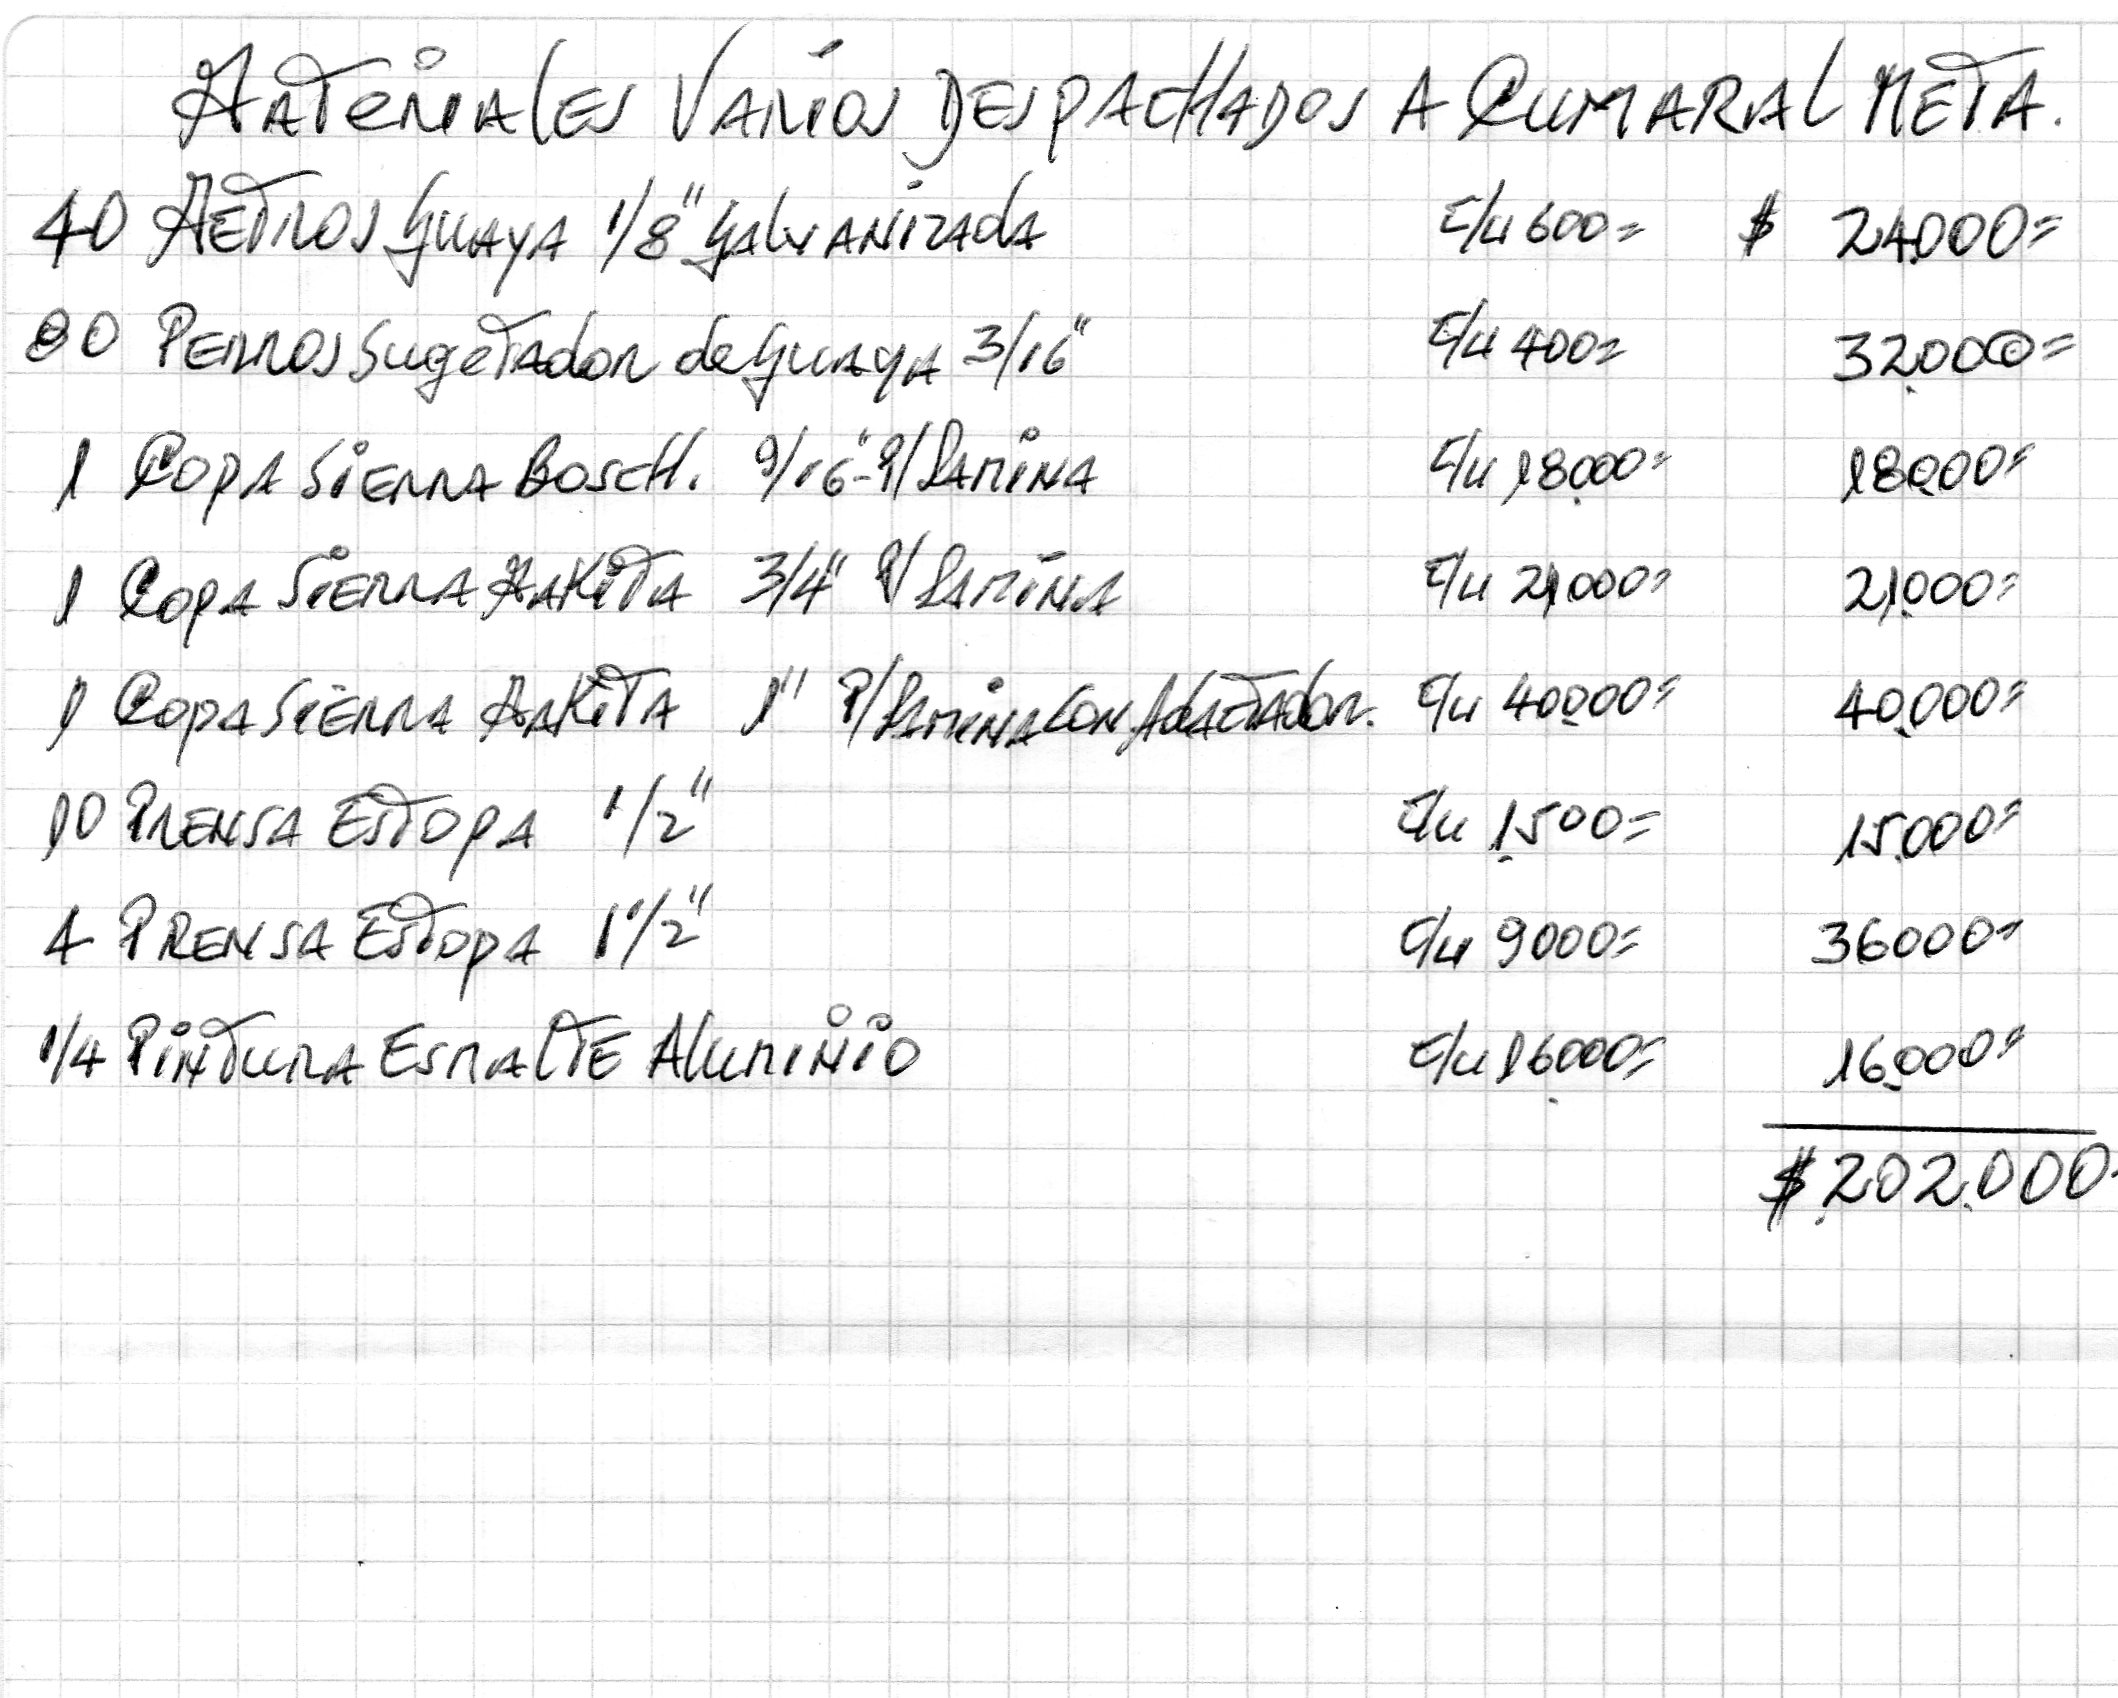 Materiales Varios Despachados a Cumaral Meta.
40 Metros Guaya 1/8" Galvanizada c/u 600= $ 24.000=
80 Perros Sugetador de Guaya 3/16" c/u 400= 32.000=
1 Copa Sierra Bosch. 9/16"- P/Lamina c/u 18.000= 18.000=
1 Copa Sierra Makita 3/4" P/Lamina c/u 21.000= 21.000=
1 Copa Sierra Makita 1" P/Lamina con Adactador. c/u 40.000= 40.000=
10 Prensa Estopa 1/2" c/u 1.500= 15.000=
4 Prensa Estopa 1 1/2" c/u 9000= 36000=
1/4 Pintura Esmalte Aluminio c/u 16.000= 16.000=
$ 202.000=